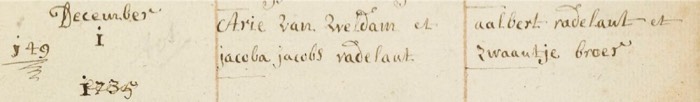 December
149
1
1735
Arie van Weldam et
jacoba jacobs radelaut
aalbert radelaut et
zwaantje broer